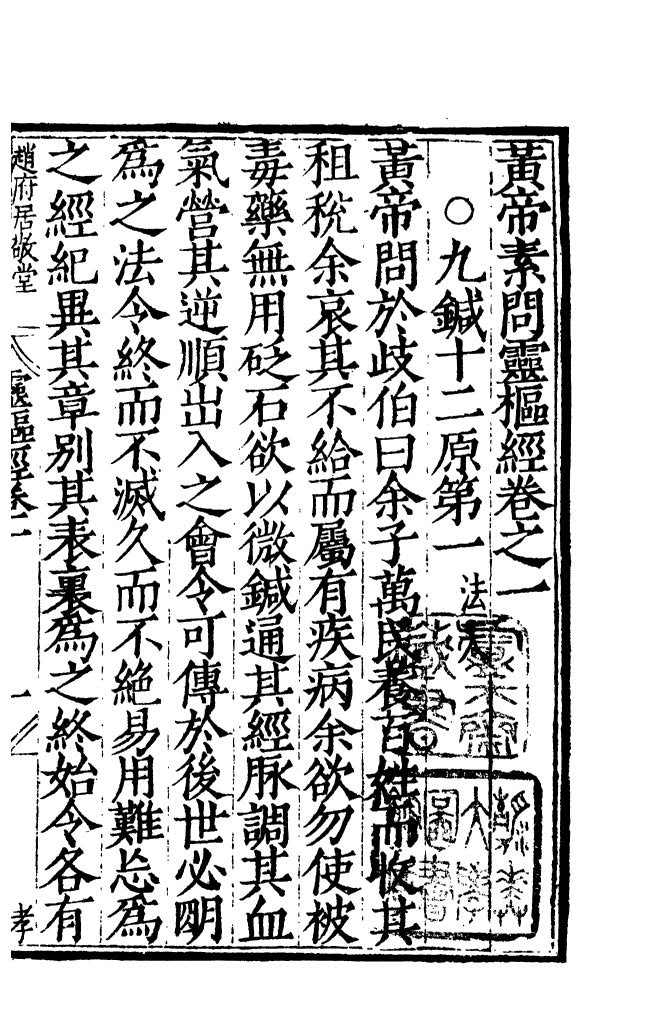 黃帝素問靈樞經卷之一
○九鍼十二原第一 法天
黃帝問於歧伯曰余子萬民養百姓而收其
租稅余哀其不給而屬有疾病余欲勿使被
毒藥無用砭石欲以微鍼通其經脉調其血
氣營其逆順出入之會令可傳於後世必明
爲之法令終而不滅久而不絶易用難忘爲
之經紀異其章別其表裏爲之終始令各有
趙府居敬堂 靈樞經卷一 一 孝